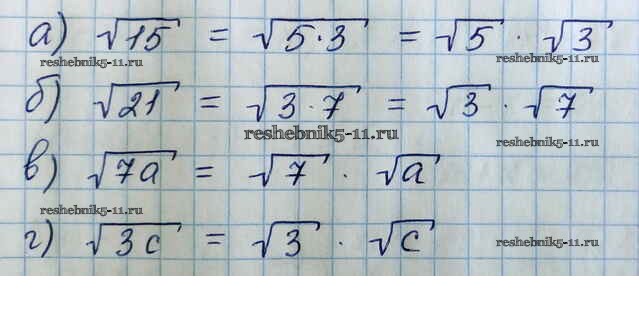 а) √15 = √5·3 = √5 · √3
reshebnik5-11.ru reshebnik5-11.ru
б) √21 = √3·7 = √3 · √7
reshebnik5-11.ru
в) √7a = √7 · √a
reshebnik5-11.ru
г) √3c = √3 · √c
reshebnik5-11.ru